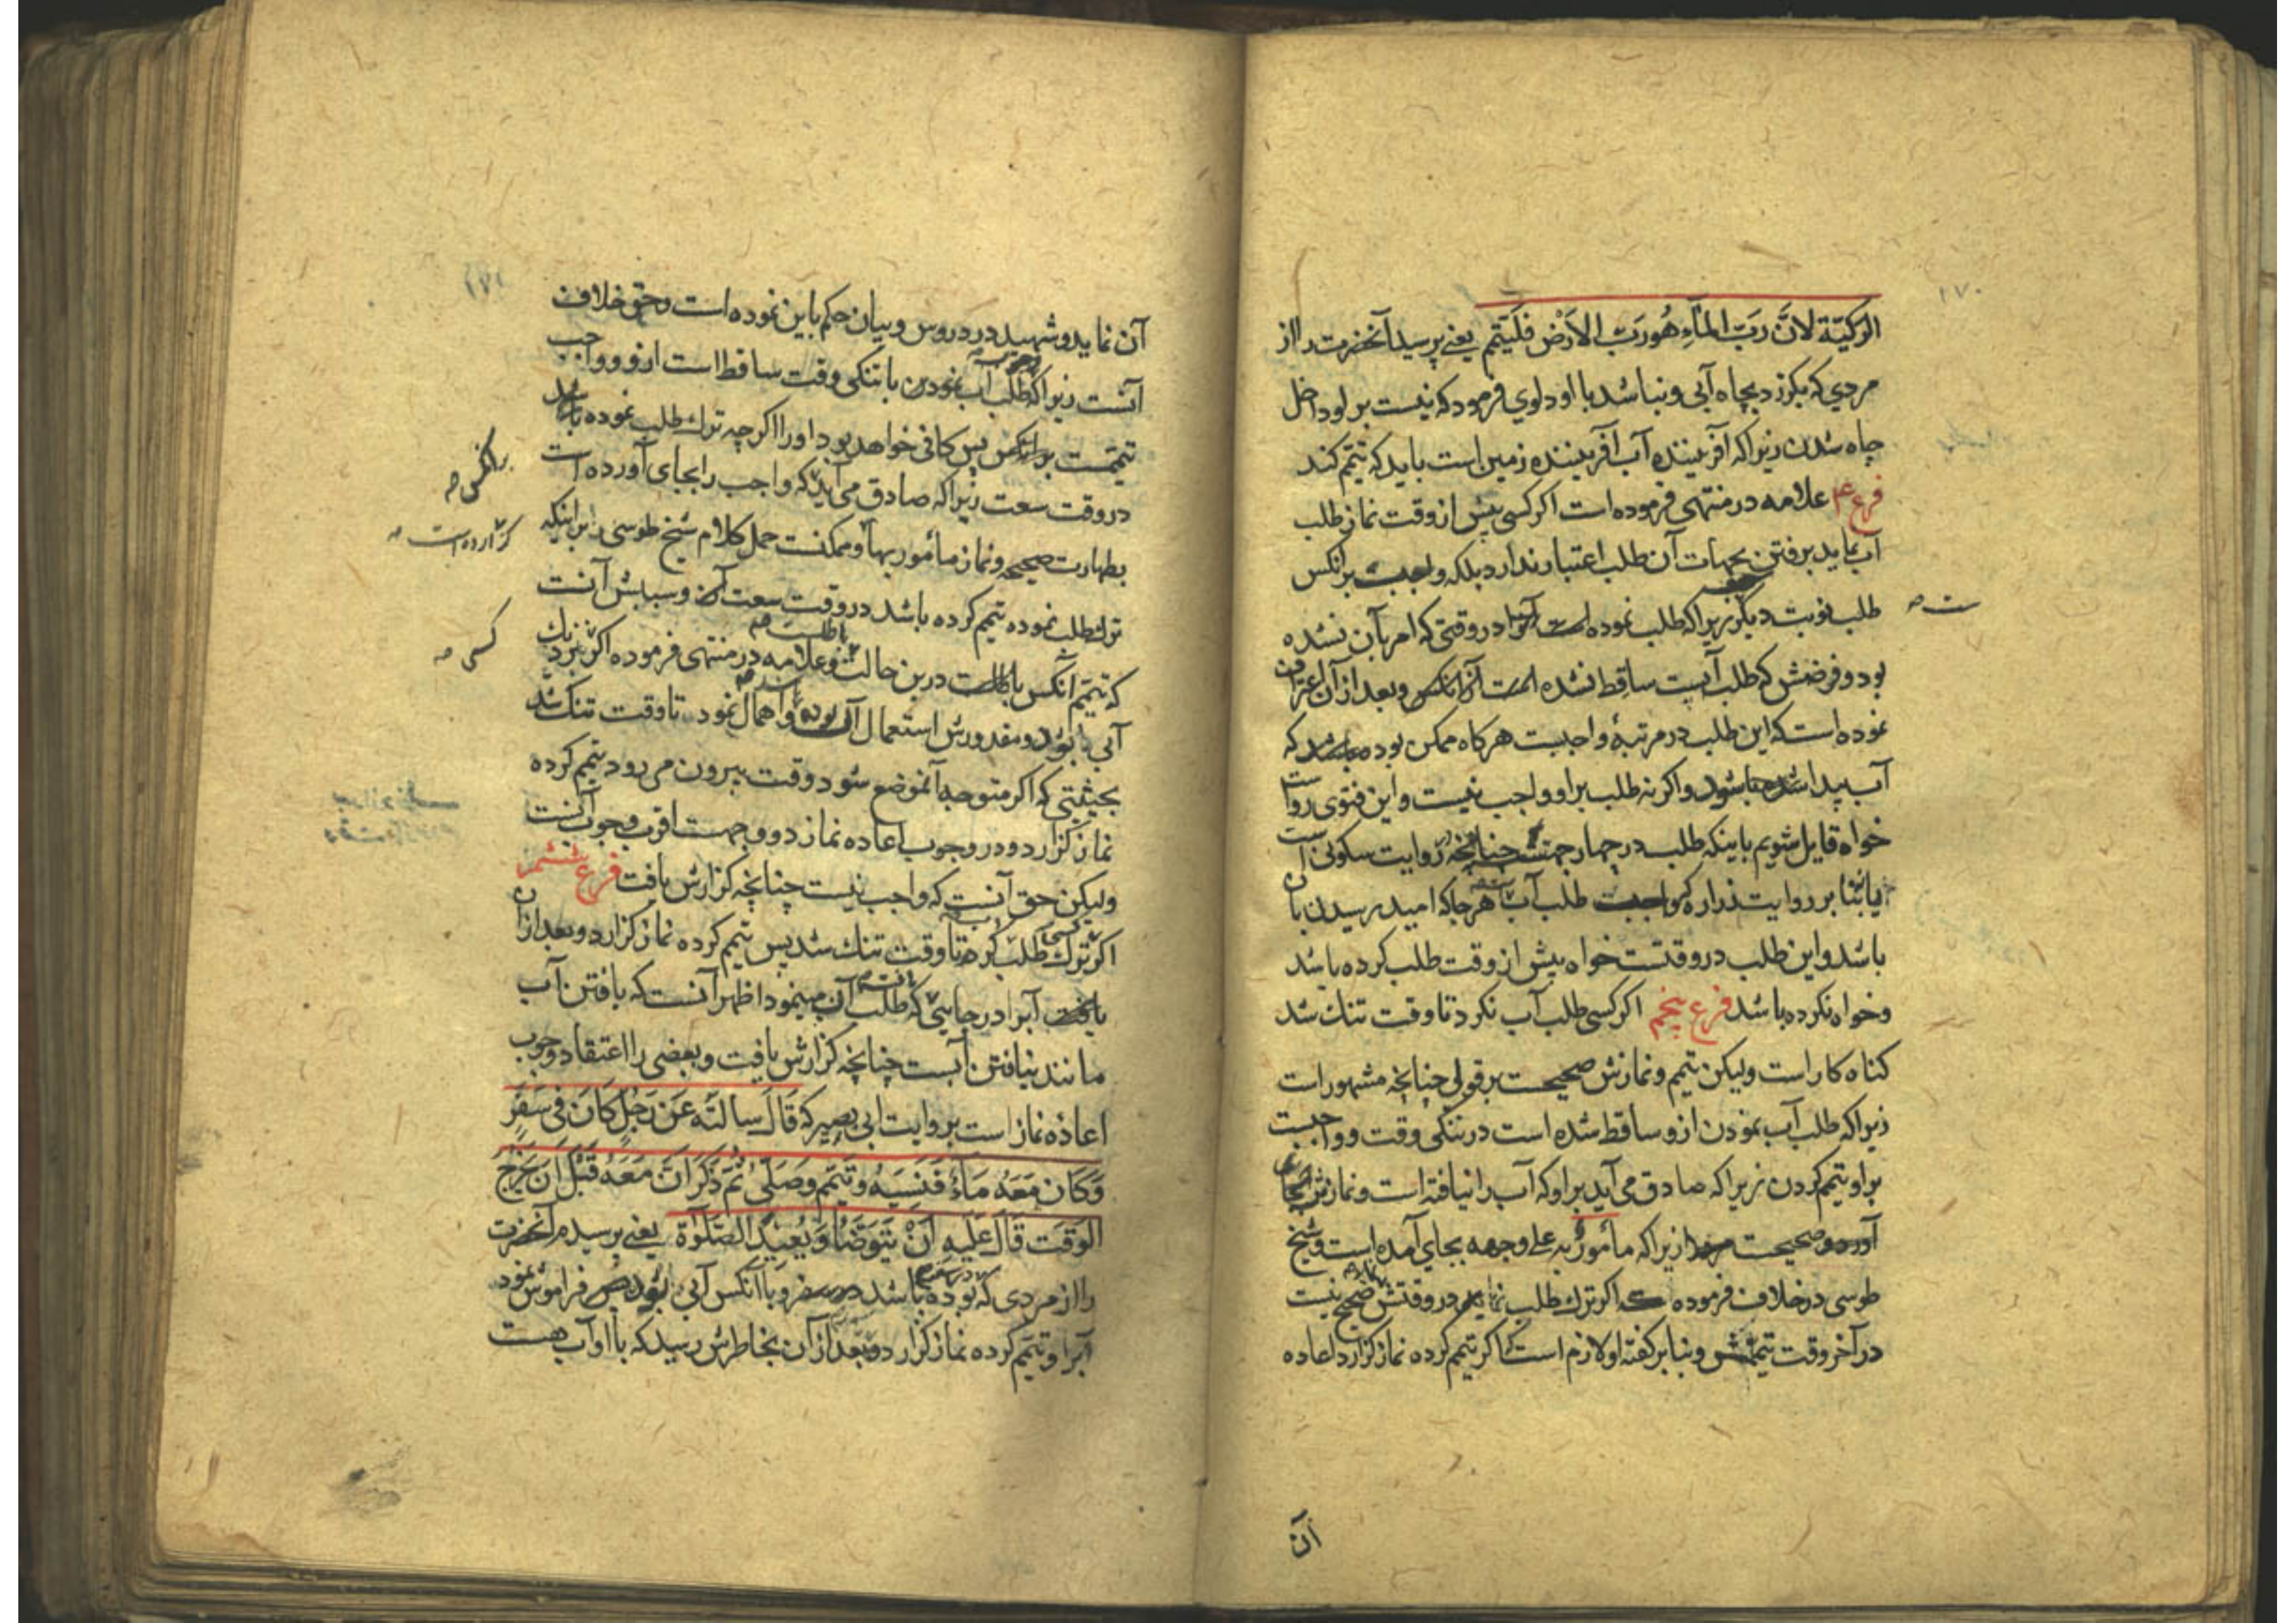 ۱۷۰
الرکیّة لانَّ رَبَّ المَآءِ هُوَ رَبّ الاَرْض فَلْیَتَیَمَّم یعنی پرسید آنحضرت را از
مردی که بگذرد بچاه آبی و نباشد با او دلوی فرمود که نیست بر او داخل
چاه شدن زیرا که آفریننده آب آفریننده زمین است باید که تیمّم کند
فرع ۴ علامه در منتهی فرموده است اکر کسی پیش از وقت نماز طلب
آب نماید برفتن بجهات آن طلب اعتبار ندارد بلکه واجبست برانکس
طلب نوبت دیکر زیرا که طلب نموده است در وقتی که امر بآن نشده
بود و فرضش که طلب آبست ساقط نشده و بعد از آن اعتراف
نموده است که این طلب در مرتبهٔ واجبست هرکاه ممکن بوده باشد که
آب پیدا شود واکر نه طلب بر او واجب نیست و این فتوی رواست
خواه قایل شویم باینکه طلب در چهار جهتست چنانچه روایت سکونی است
یا بنا بر روایت زراره که طلب آب هر جا که امید رسیدن بآن
باشد و این طلب در وقتست خواه پیش از وقت طلب کرده باشد
و خواه نکرده باشد فرع پنجم اکر کسی طلب آب نکرد تا وقت تنک شد
کناه کار است ولیکن تیمم و نمازش صحیحست بر قولی چنانچه مشهور است
زیرا که طلب آب نمودن ازو ساقط شده است در تنکی وقت و واجبست
بر او تیمم کردن زیرا که صادق می آید بر او که آب را نیافته است و نمازش
صحیحست زیرا که مأمورٌ به علی وجهه بجای آمده است و شیخ
طوسی در خلاف فرموده که اکر ترک طلب نماید در وقتش صحیح نیست
در آخر وقت تیممش و بنا بر کفته او لازم است که اکر تیمم کرده نماز کزارد اعاده
آن
۱۷۱
آن نماید و شهید در دروس و بیان حکم باین نموده است و حق خلاف
آنست زیرا که طلب آب نمودن با تنکی وقت ساقط است ازو و واجب
تیممست پس کافی خواهد بود او را اکرچه ترک طلب نموده باشد
برانکس
در وقت سعت زیرا که صادق می آید که واجب را بجای آورده است
بطهارت صحیحه و نماز مأمور بها و ممکنست حمل کلام شیخ طوسی بر اینکه
کزارده است
ترک طلب نموده تیمم کرده باشد در وقت سعت و سببش آنست
که تیمّم آنکس باطلست درین حالت و علامه در منتهی فرموده اکر نزدیک
کسی
آبی بود و مقدورش استعمال آن و اهمال نمود تا وقت تنک شد
بحیثیتی که اکر متوجه آنموضع شود وقت بیرون می رود تیمم کرده
نماز کزارد و در وجوب اعاده نماز دو وجهست اقرب وجوب آنست
ولیکن حق آنست که واجب نیست چنانچه کزارش یافت فرع ششم
اکر کسی ترک طلب کرد تا وقت تنک شد پس تیمم کرده نماز کزارد و بعد از آن
یافت آبرا در جایی که طلب آن مینمود اظهر آنست که یافتن آب
مانند نیافتن آبست چنانچه کزارش یافت و بعضی را اعتقاد وجوب
اعاده نماز است بروایت ابی بصیر که قَالَ سَالتَه عَن رَجُلٍ کَانَ فی سَفَرٍ
وَکَانَ مَعَهُ مَآءٌ فَنَسِیَهُ وَتَیَمّمَ وَصَلّی ثُمّ ذَکَرَ اَنّ مَعَهُ قَبْلَ اَن یَخرُجَ
الوَقتَ قَالَ عَلَیهِ اَنْ یَتَوَضّأ وَیُعیدَ الصّلَوة یعنی پرسیدم آنحضرت
را از مردی که بوده باشد در سفر و با آنکس آبی بود پس فراموش نمود
آبرا و تیمّم کرده نماز کزارد و بعد از آن بخاطرش رسید که با او آب هست